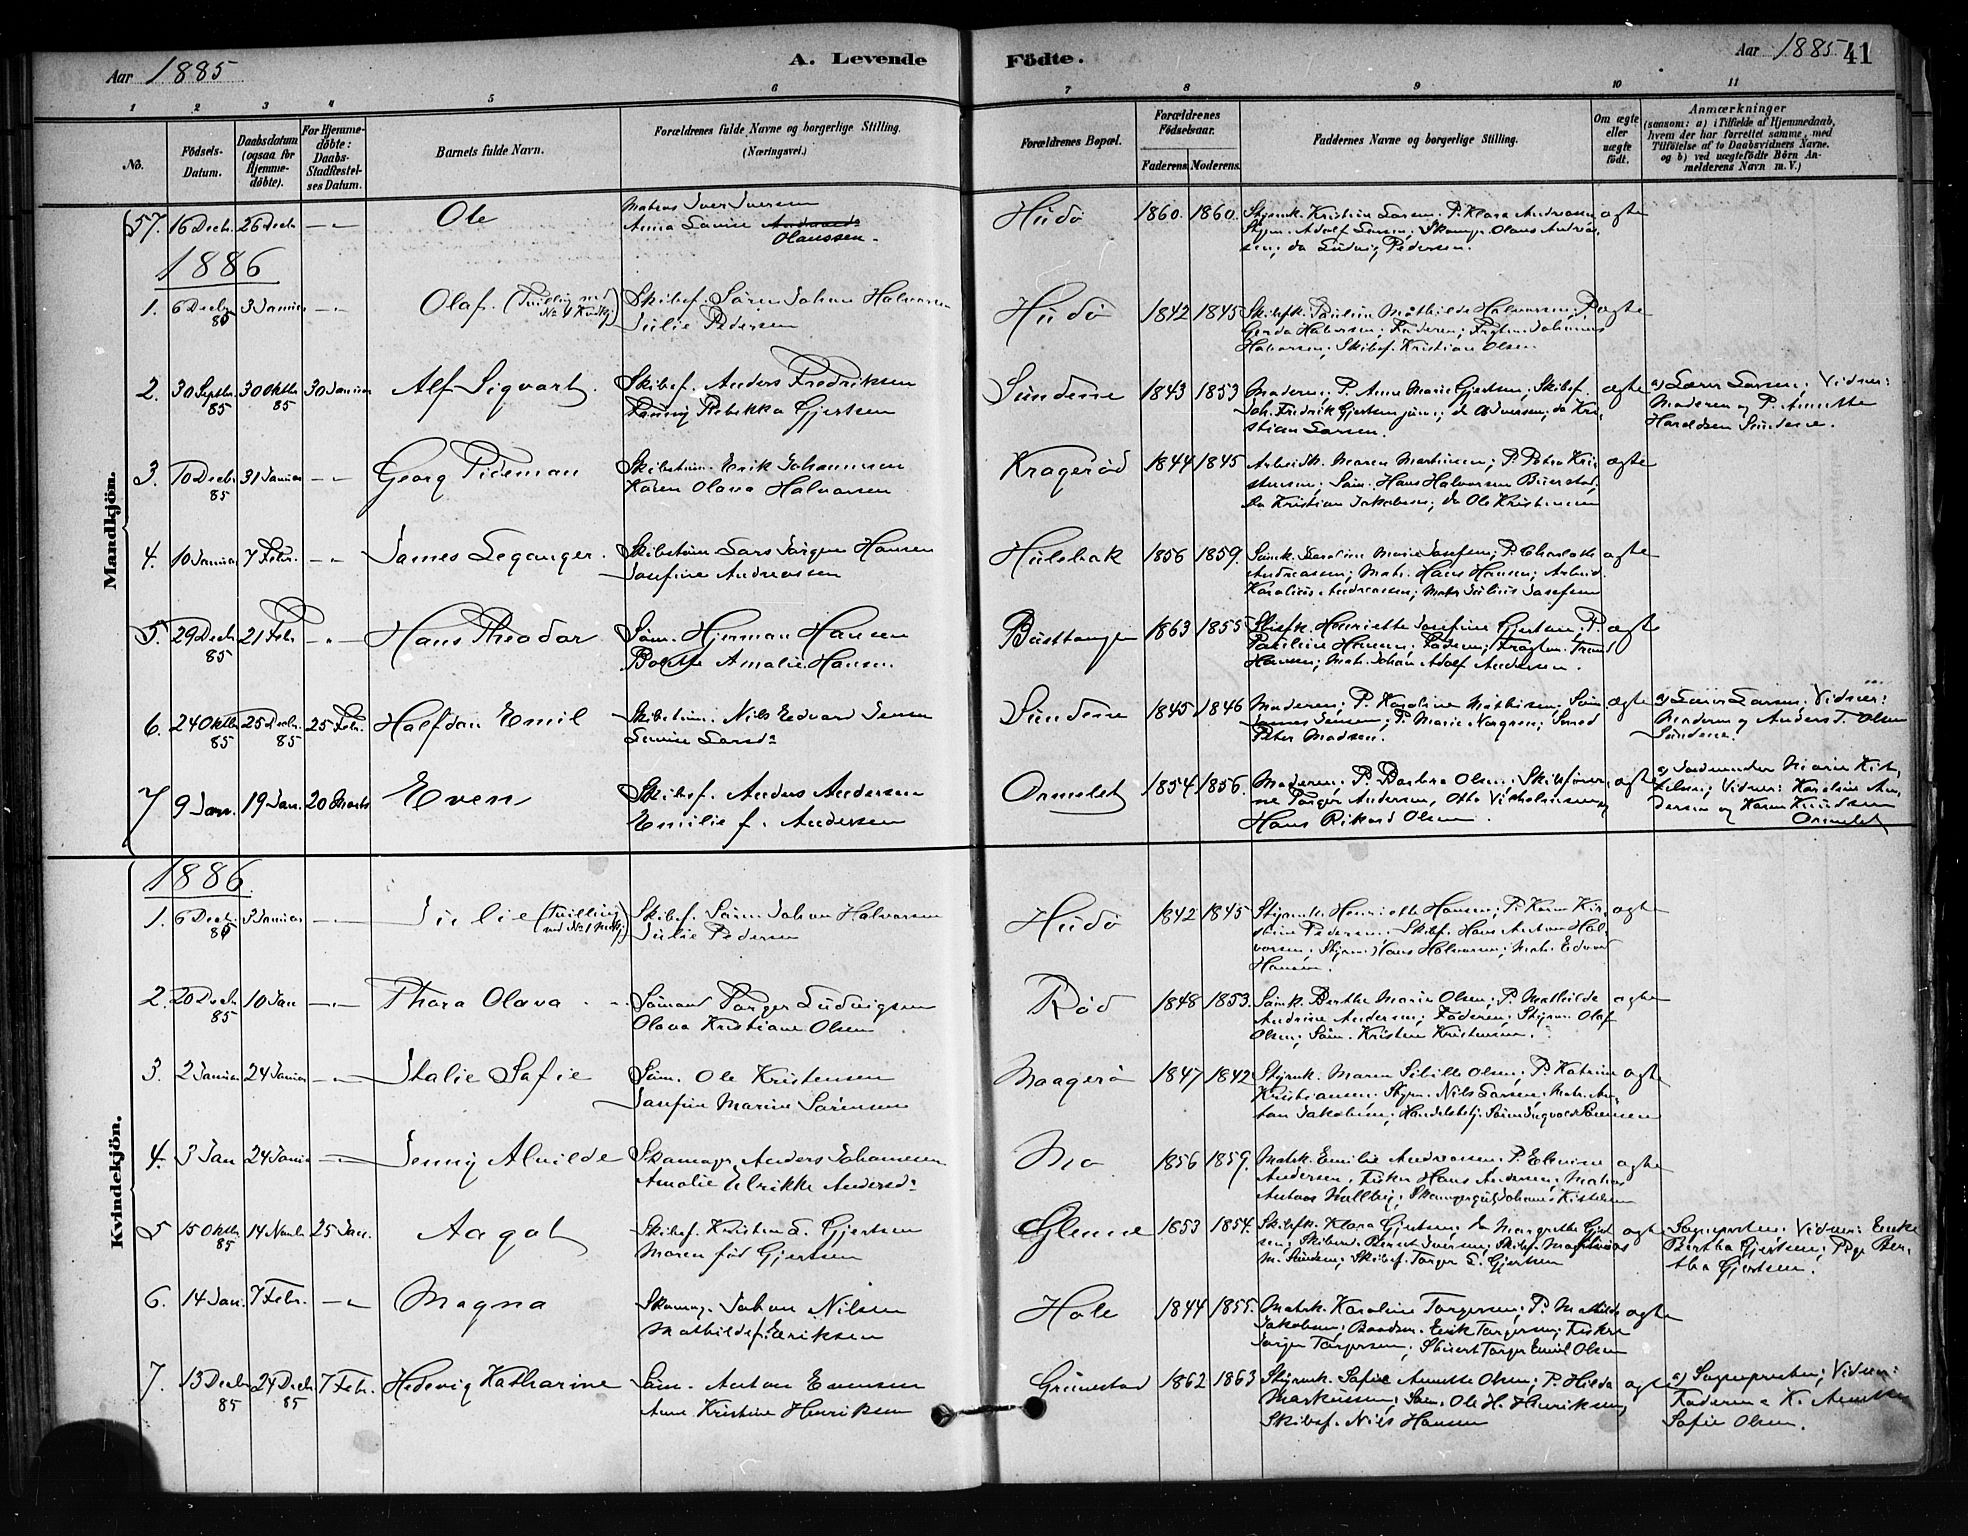 Aar 1885
A. Levende
Födte.
Aar 1885
41
1 2 3 4 5 6 7 8 9 10 11
No.
Födsels-
Datum.
Daabsdatum
(ogsaa for
Hjemme-
döbte).
For Hjemme-
döbte:
Daabs-
Stadfæstel-
ses Datum.
Barnets fulde Navn.
Forældrenes fulde Navne og borgerlige Stilling.
(Næringsvei.)
Forældrenes Bopæl.
Forældrenes
Födselsaar.
Faderens. Moderens.
Faddernes Navne og borgerlige Stilling.
Om ægte
eller
uægte
födt.
Anmærkninger
(saasom: a) i Tilfælde af Hjemmedaab,
hvem der har forrettet samme, med
Tilföielse af to Daabsvidners Navne.
og b) ved uægtefödte Börn An-
melderens Navn m.V.)
Mandkjön.
57. 16 Decbr. 26 Decbr. -"- Ole
Matros Iver Iversen
Anna Lovise
Olaussen.
Hudö 1860. 1860.
Styrmk. Kristine Larsen. P. Klara Andreassen
Styrm. Adolf Larsen; Skomgr. Olaus Andreas-
sen; do Ludvig Pedersen.
ægte
1886
1. 6 Decbr 3 Januar -"- Olaf. (Tvilling med
85
Skibsf. Sören Johan Halvorsen
Julie Pedersen
Hudö 1842 1845
Skibsfk. Pauline Mathilde Halvorsen; P.
Gerda Halvorsen; Faderen; Johannes
Halvorsen; Skibsf. Kristian Olsen
ægte
2. 30 Septbr 30 Oktbr 30 Januar Alf Sigvart.
85 85
Skibsf. Anders Fredriksen
Fanny Rebekka Gjertsen
Sundene 1843 1853
Moderen; P. Anne Marie Gjertsen, Skibsf.
Joh. Fredrik Gjertsen jun.; do Kri-
stian Larsen.
ægte
a) Lærer Larsen; Vidner:
Moderen og P. Annette
Haraldsen Sundene.
3. 10 Decbr 31 Januar -"- Georg Pideman
85
Skibstöm. Erik Johannesen
Karen Olava Halvorsen
Krageröd 1844 1845
Arbeidk. Maren Martinsen; P. Petra Kri-
stensen; Söm. Hans Halvorsen
do Kristian Jakobsen; do Ole Kristensen
ægte
4. 10 Januar 7 Febr. -"- James Leganger.
Skibstöm Lars Jörgen Hansen
Josefine Andreassen
Hulebak 1856 1859.
Sömk. Karoline Marie Josefsen; P. Charlotte
Andreassen; Matr. Hans Hansen; Arbeid.
Karolius Andreassen; Matr Julius Josefsen
ægte
5. 29 Decbr 21 Febr -"- Hans Theodor
85
Söm. Herman Hansen
Bolette Amalie Hansen.
Busttangen 1863 1855
Skibsfk. Henriette Josefine Gjertsen, P.
Pauline Hansen; Faderen;
Hansen; Matr. Johan Adolf Andersen.
ægte
6. 24 Oktbr 25 Decbr. 25 Febr. Halfdan Emil
85 85
Skibstöm. Nils Edvard Jensen
Lovise Larsdr
Sundene 1845 1846
Moderen; P. Karoline Mathisen; Söm
James Jensen; P. Marie Norgren;
Peter Madsen.
ægte
a) Lærer Larsen. Vidner:
Moderen og Anders T. Olsen
Sundene.
7 9 Jan. 19 Jan. 20 Marts Even
Skibsf. Anders Andersen
Emilie f. Andersen
Ormelet 1854 1856.
Moderen; P. Barbra Olsen; Skibsförer-
ne Torger Andersen, Otto Vilhelmsen og
Hans Rikard Olsen.
ægte
a) Jordmoder Marie Kit-
telsen; Vidner: Karoline An-
dersen og Karen Knudsen
Ormelet
Kvindekjön.
1886.
1. 6 Decbr. 3 Januar -"- Julie (Tvilling
85 med No 1 Mandkj)
Skibsf. Sören Johan Halvorsen
Julie Pedersen
Hudö 1842 1845
Styrmk. Henriette Hansen; P. Karen Kir-
stine Pedersen. Skibsf. Hans Anton Hal-
vorsen; Styrm. Hans Halvorsen; Matr. Edvard
Hansen.
ægte
2. 20 Decbr. 10 Jan -"- Thora Olava
85
Sömand Torger Ludvigsen
Olava Kristiane Olsen
Röd 1848 1853.
Sömk. Berthe Marie Olsen; P. Mathilde
Andrine Andersen; Faderen; Styrm. Olaf
Olsen; Söm. Kristen Kristensen.
ægte
3. 2 Januar 24 Januar -"- Italie Sofie
Söm. Ole Kristensen
Josefine Marine Sörensen
Maagerö 1847 1842
Styrmk. Maren Sibille Olsen; P. Katrine
Kristiansen; Styrm. Nils Larsen; Matr. An-
ton Jakobsen; Handelsbetj. Sören Ingvald Sörensen
ægte
4. 3 Jan 24 Januar -"- Jenny Alvilde
Skomagr Anders Johannesen
Amalie Ulrikke Andersdr
Mo 1856 1859.
Matrk. Emilie Andreassen; P. Elevine
Andersen, Fisker Hans Andersen; Matros
Antoni Hullberg; Skomagersv. Johannes Kittelsen
ægte
5 15 Oktbr 14 Novbr 25 Jan. Aagot
85
Skibsf. Kristen L. Gjertsen
Maren föd Gjertsen
Glenne 1853 1854.
Skibsfk. Klara Gjertsen; do Margrethe Gjert-
sen; Skibsm. Bernt Iversen; Skibsf. Mathias
M. Knudsen; Skibsf. Torger L. Gjertsen
ægte
Sogneprsten; Vidner: Enke
Bertha Gjertsen; Pige Ber-
tha Gjertsen.
6. 14 Jan. 7 Febr. -"- Magna
Skomag. Johan Nilsen
Mathilde f. Eriksen
Hole 1844 1855.
Matrk. Karoline Torgersen; P. Mathilde
Jakobsen; Baadsm. Erik Torgersen; Fisker
Jörgen Torgersen; Stuert Torger Emil Olsen
ægte
7. 13 Decbr 24 Decbr 7 Febr. Hedevig Katharine
85 85
Söm. Anton Evensen
Anne Kristine Henriksen
Grimestad 1862 1863
Styrmk. Sofie Annette Olsen; P. Hilda
Markussen; Söm. Ole H. Henriksen,
Skibsf. Nils Hansen
ægte
a) Sogneprsten; Vidner:
Faderen & K. Annette
Sofie Olsen.